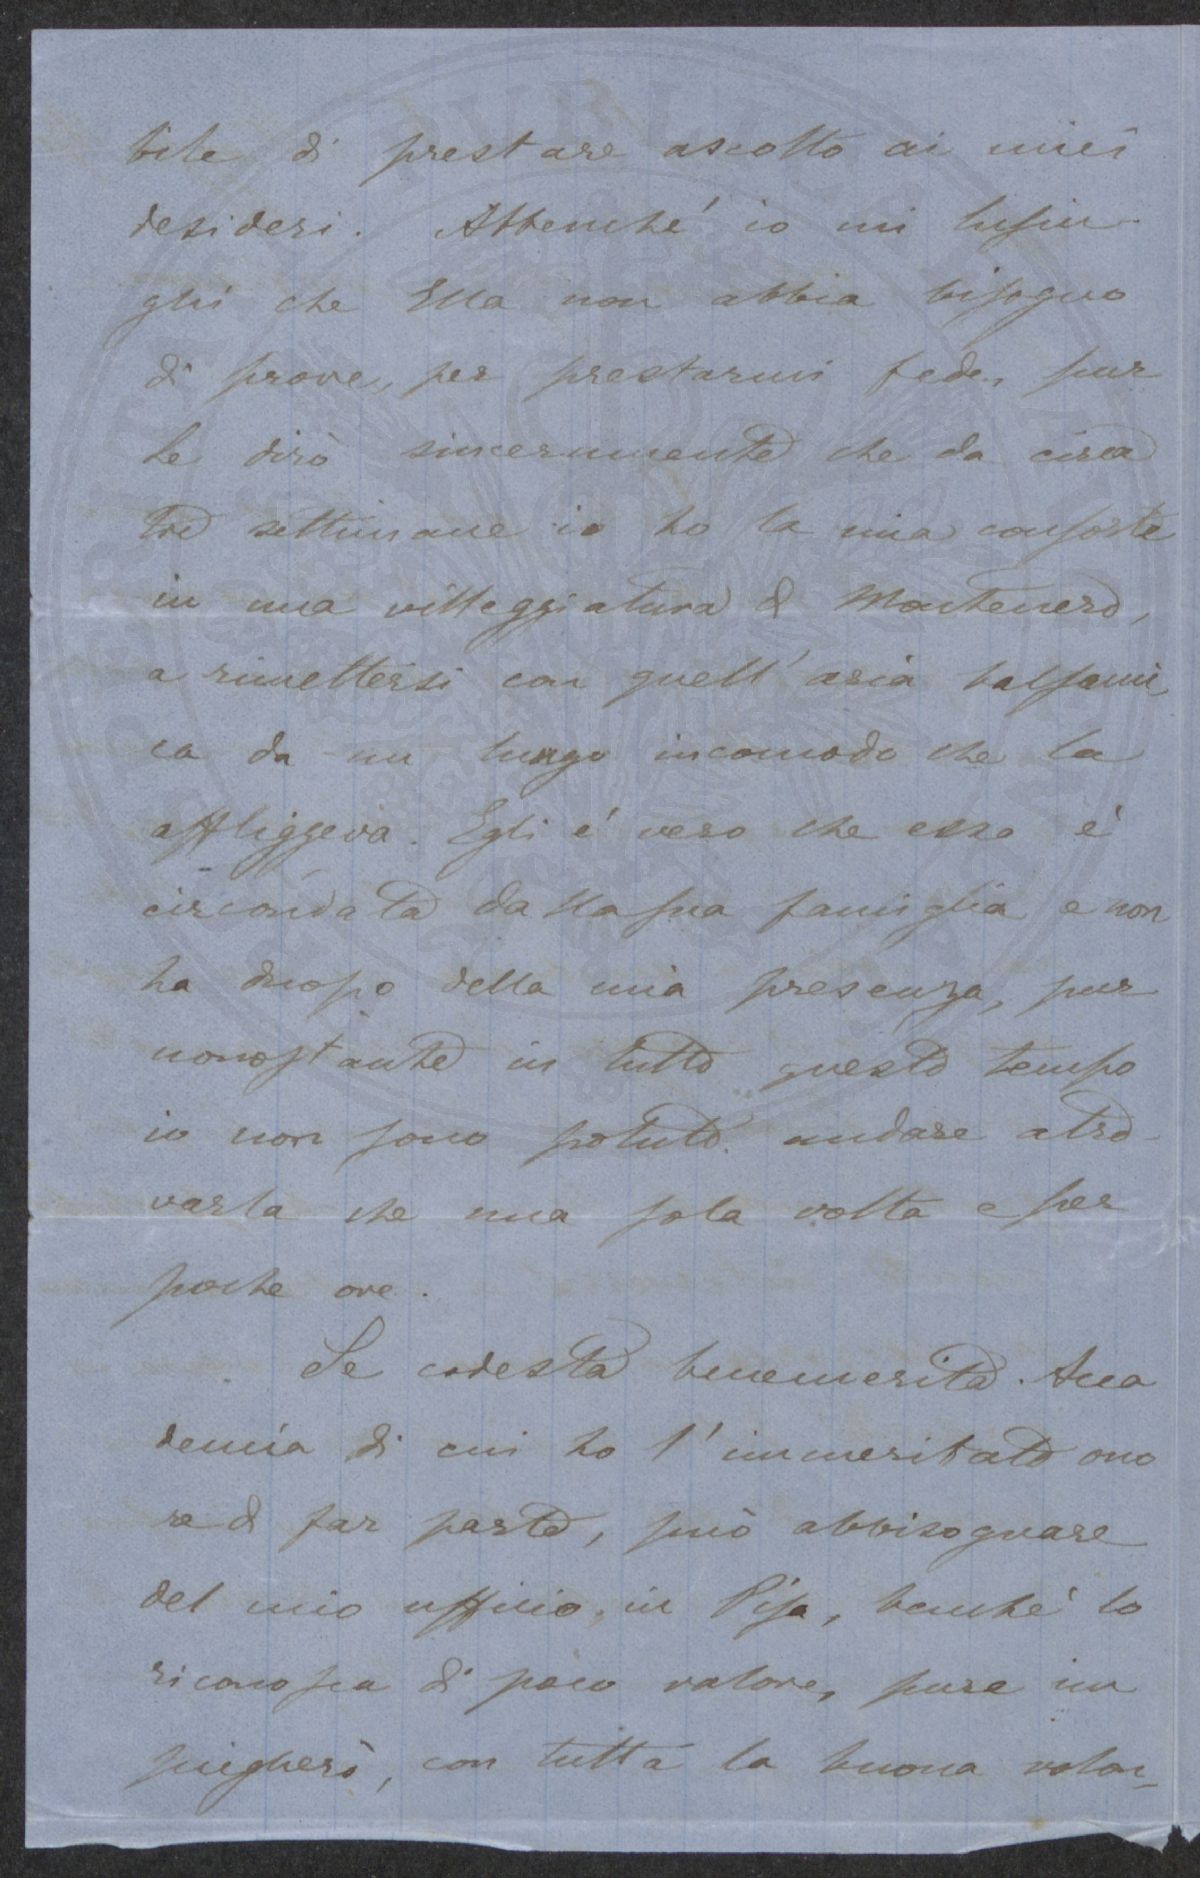 bile di prestare ascolto ai miei
desideri. Abbenché io mi lusin
ghi che Ella non abbia bisogno
di prove, per prestarmi fede, pur
Le dirò sinceramente che da circa
tre settimane io ho la mia consorte
in una villeggiatura di Montenero,
a rimettersi con quell'aria balsami
ca da un lungo incomodo che la
affliggeva. Egli é vero che essa é
circondata dalla sua famiglia e non
ha duopo della mia presenza, pur
nonostante in tutto questo tempo
io non sono potuto andare a tro-
varla che una sola volta e per
poche ore.
Se codesta benemerita Acca
demia di cui ho l'immeritato ono
re di far parte, può abbisognare
del mio ufficio, in Pisa, benché lo
riconosca di poco valore, pure im
piegherò, con tutta la buona volon